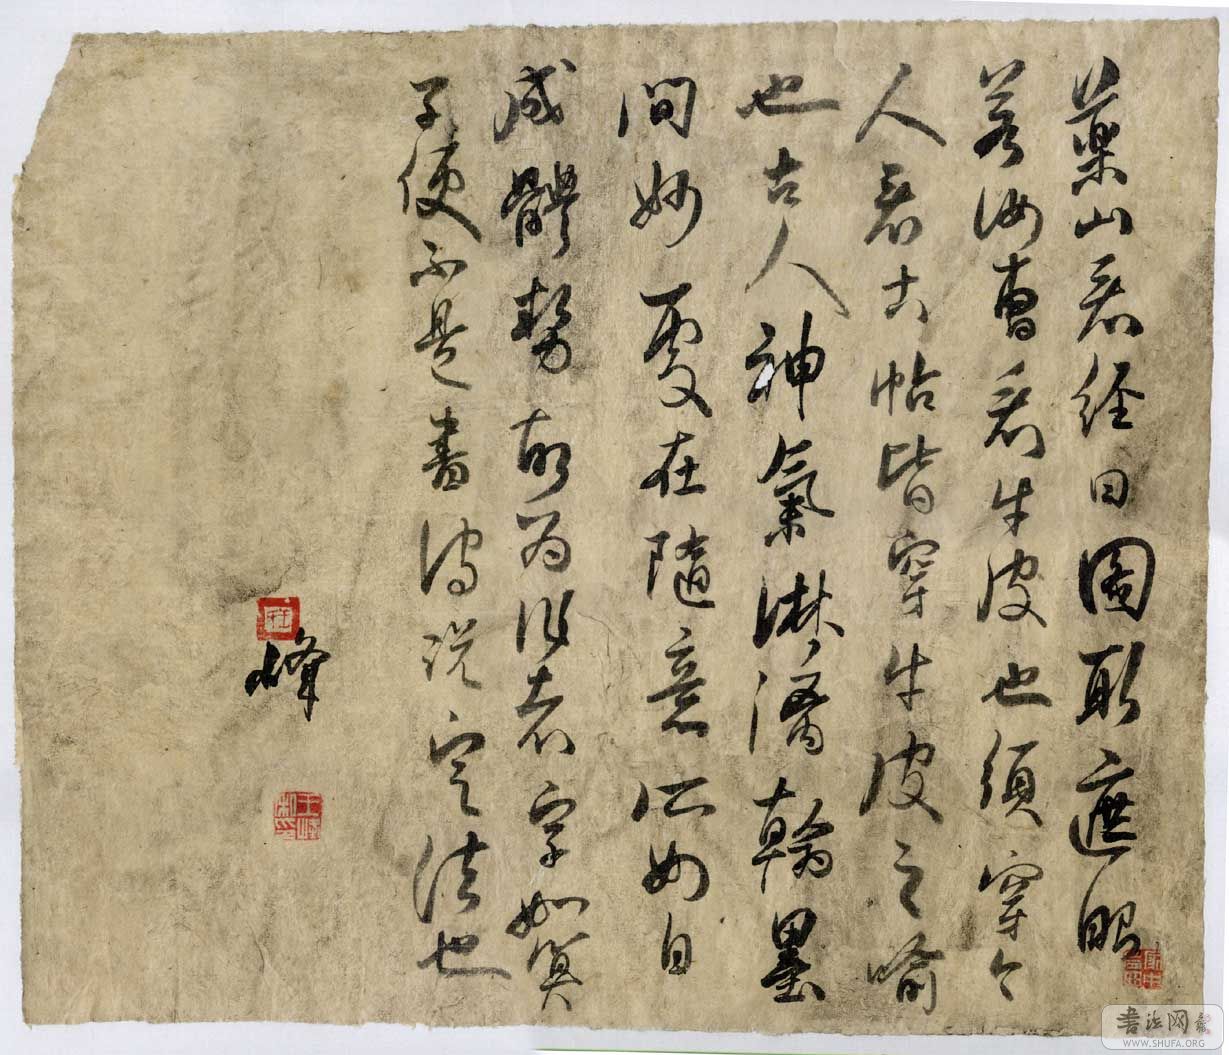 藥山看經曰圖取遮眼
若汝曹看牛皮也須穿今
人看古帖皆穿牛皮之喻
也古人神氣淋漓翰墨
間妙處在隨意所如自
成體勢故為作者字如算
子便不是書謂說定法也
峰
王峰私印
书法网
WWW.SHUFA.ORG